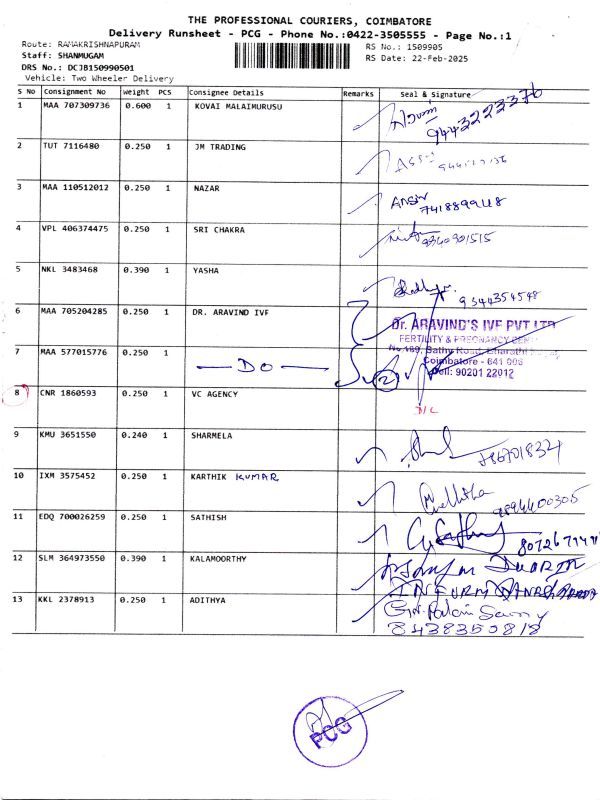 THE PROFESSIONAL COURIERS, COIMBATORE
Delivery Runsheet - PCG - Phone No.:0422-3505555 - Page No.:1
Route: RAMAKRISHNAPURAM
RS No.: 1509905
Staff: SHANMUGAM
RS Date: 22-Feb-2025
DRS No.: DCJB150990501
Vehicle: Two Wheeler Delivery
S No Consignment No Weight PCS Consignee Details Remarks Seal & Signature
1 MAA 707309736 0.600 1 KOVAI MALAIMURUSU
9443223376
2 TUT 7116480 0.250 1 JM TRADING
3 MAA 110512012 0.250 1 NAZAR
7418899418
4 VPL 406374475 0.250 1 SRI CHAKRA
9360901515
5 NKL 3483468 0.390 1 YASHA
9344354548
6 MAA 705204285 0.250 1 DR. ARAVIND IVF
Dr. ARAVIND'S IVF PVT LTD
FERTILITY & PREGNANCY
7 MAA 577015776 0.250 1 — DO —
No.189, Sathy Road,
Coimbatore - 641 006
2 Cell: 90201 22012
8 CNR 1860593 0.250 1 VC AGENCY
D/L
9 KMU 3651550 0.240 1 SHARMELA
10 IXM 3575452 0.250 1 KARTHIK KUMAR
11 EDQ 700026259 0.250 1 SATHISH
12 SLM 364973550 0.390 1 KALAMOORTHY
13 KKL 2378913 0.250 1 ADITHYA
8438350818
PCG